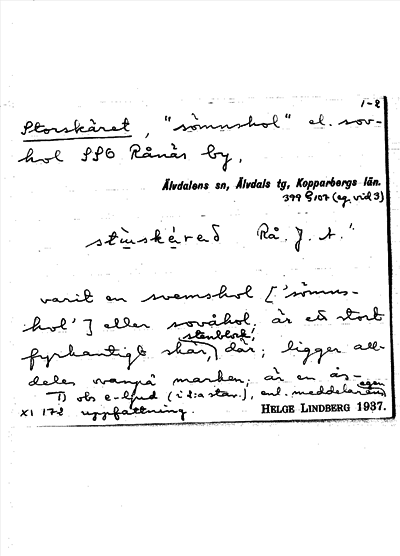 1-2
Storskäret, "sömnshol" el. sov-
hol SSO Rånäs by,
Älvdalens sn, Älvdals tg, Kopparbergs län.
399 S107 (eg. vid 3)
Rå. J. A.
varit en svemshol ['sömns-
hol'] eller sovåhol; är ett stort
stenblock;
fyrkantigt skär, där; ligger all-
deles ovanpå marken; är en ås-
1) obs e-ljud (i 2:a stav.), enl. meddelarens egen
XI 172 uppfattning. HELGE LINDBERG 1937.